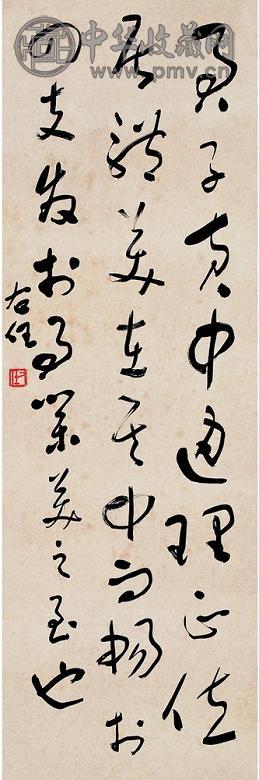 君子黄中通理正位
居体美在其中而畅於
四支发於事业美之至也
右任
中华收藏网
www.pmv.cn